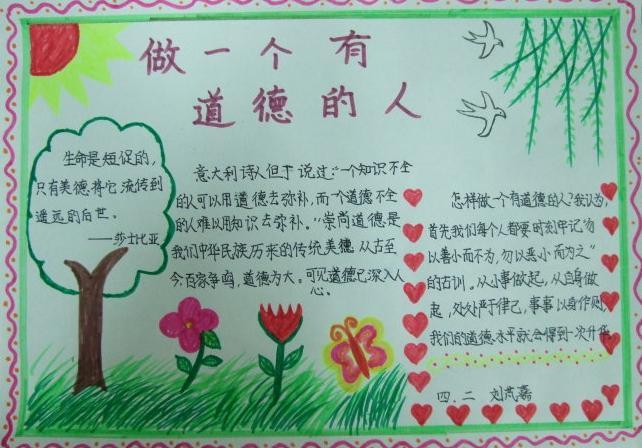 做一个有
道德的人
生命是短促的,
只有美德将它流传到
遥远的后世。
——莎士比亚
意大利诗人但丁说过:“一个知识不全
的人可以用道德去弥补,而一个道德不全
的人难以用知识去弥补。”崇尚道德是
我们中华民族历来的传统美德.从古至
今百家争鸣,道德为大。可见道德已深入人
心。
怎样做一个有道德的人?我认为,
首先我们每个人都要时刻牢记“勿
以善小而不为,勿以恶小而为之”
的古训。从小事做起,从自身做
起,处处严于律己,事事以身作则,
我们的道德水平就会得到一次升华
四.二 刘芃嘉